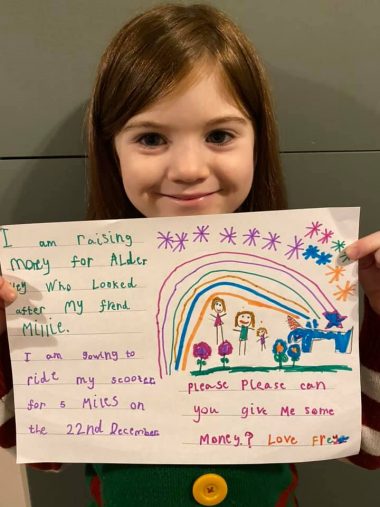 I am raising
money for Alder
Hey who Looked
after My frend
Millie.
I am gowing to
ride my scooter
for 5 Miles on
the 22nd December
please please can
you give Me some
Money.? Love